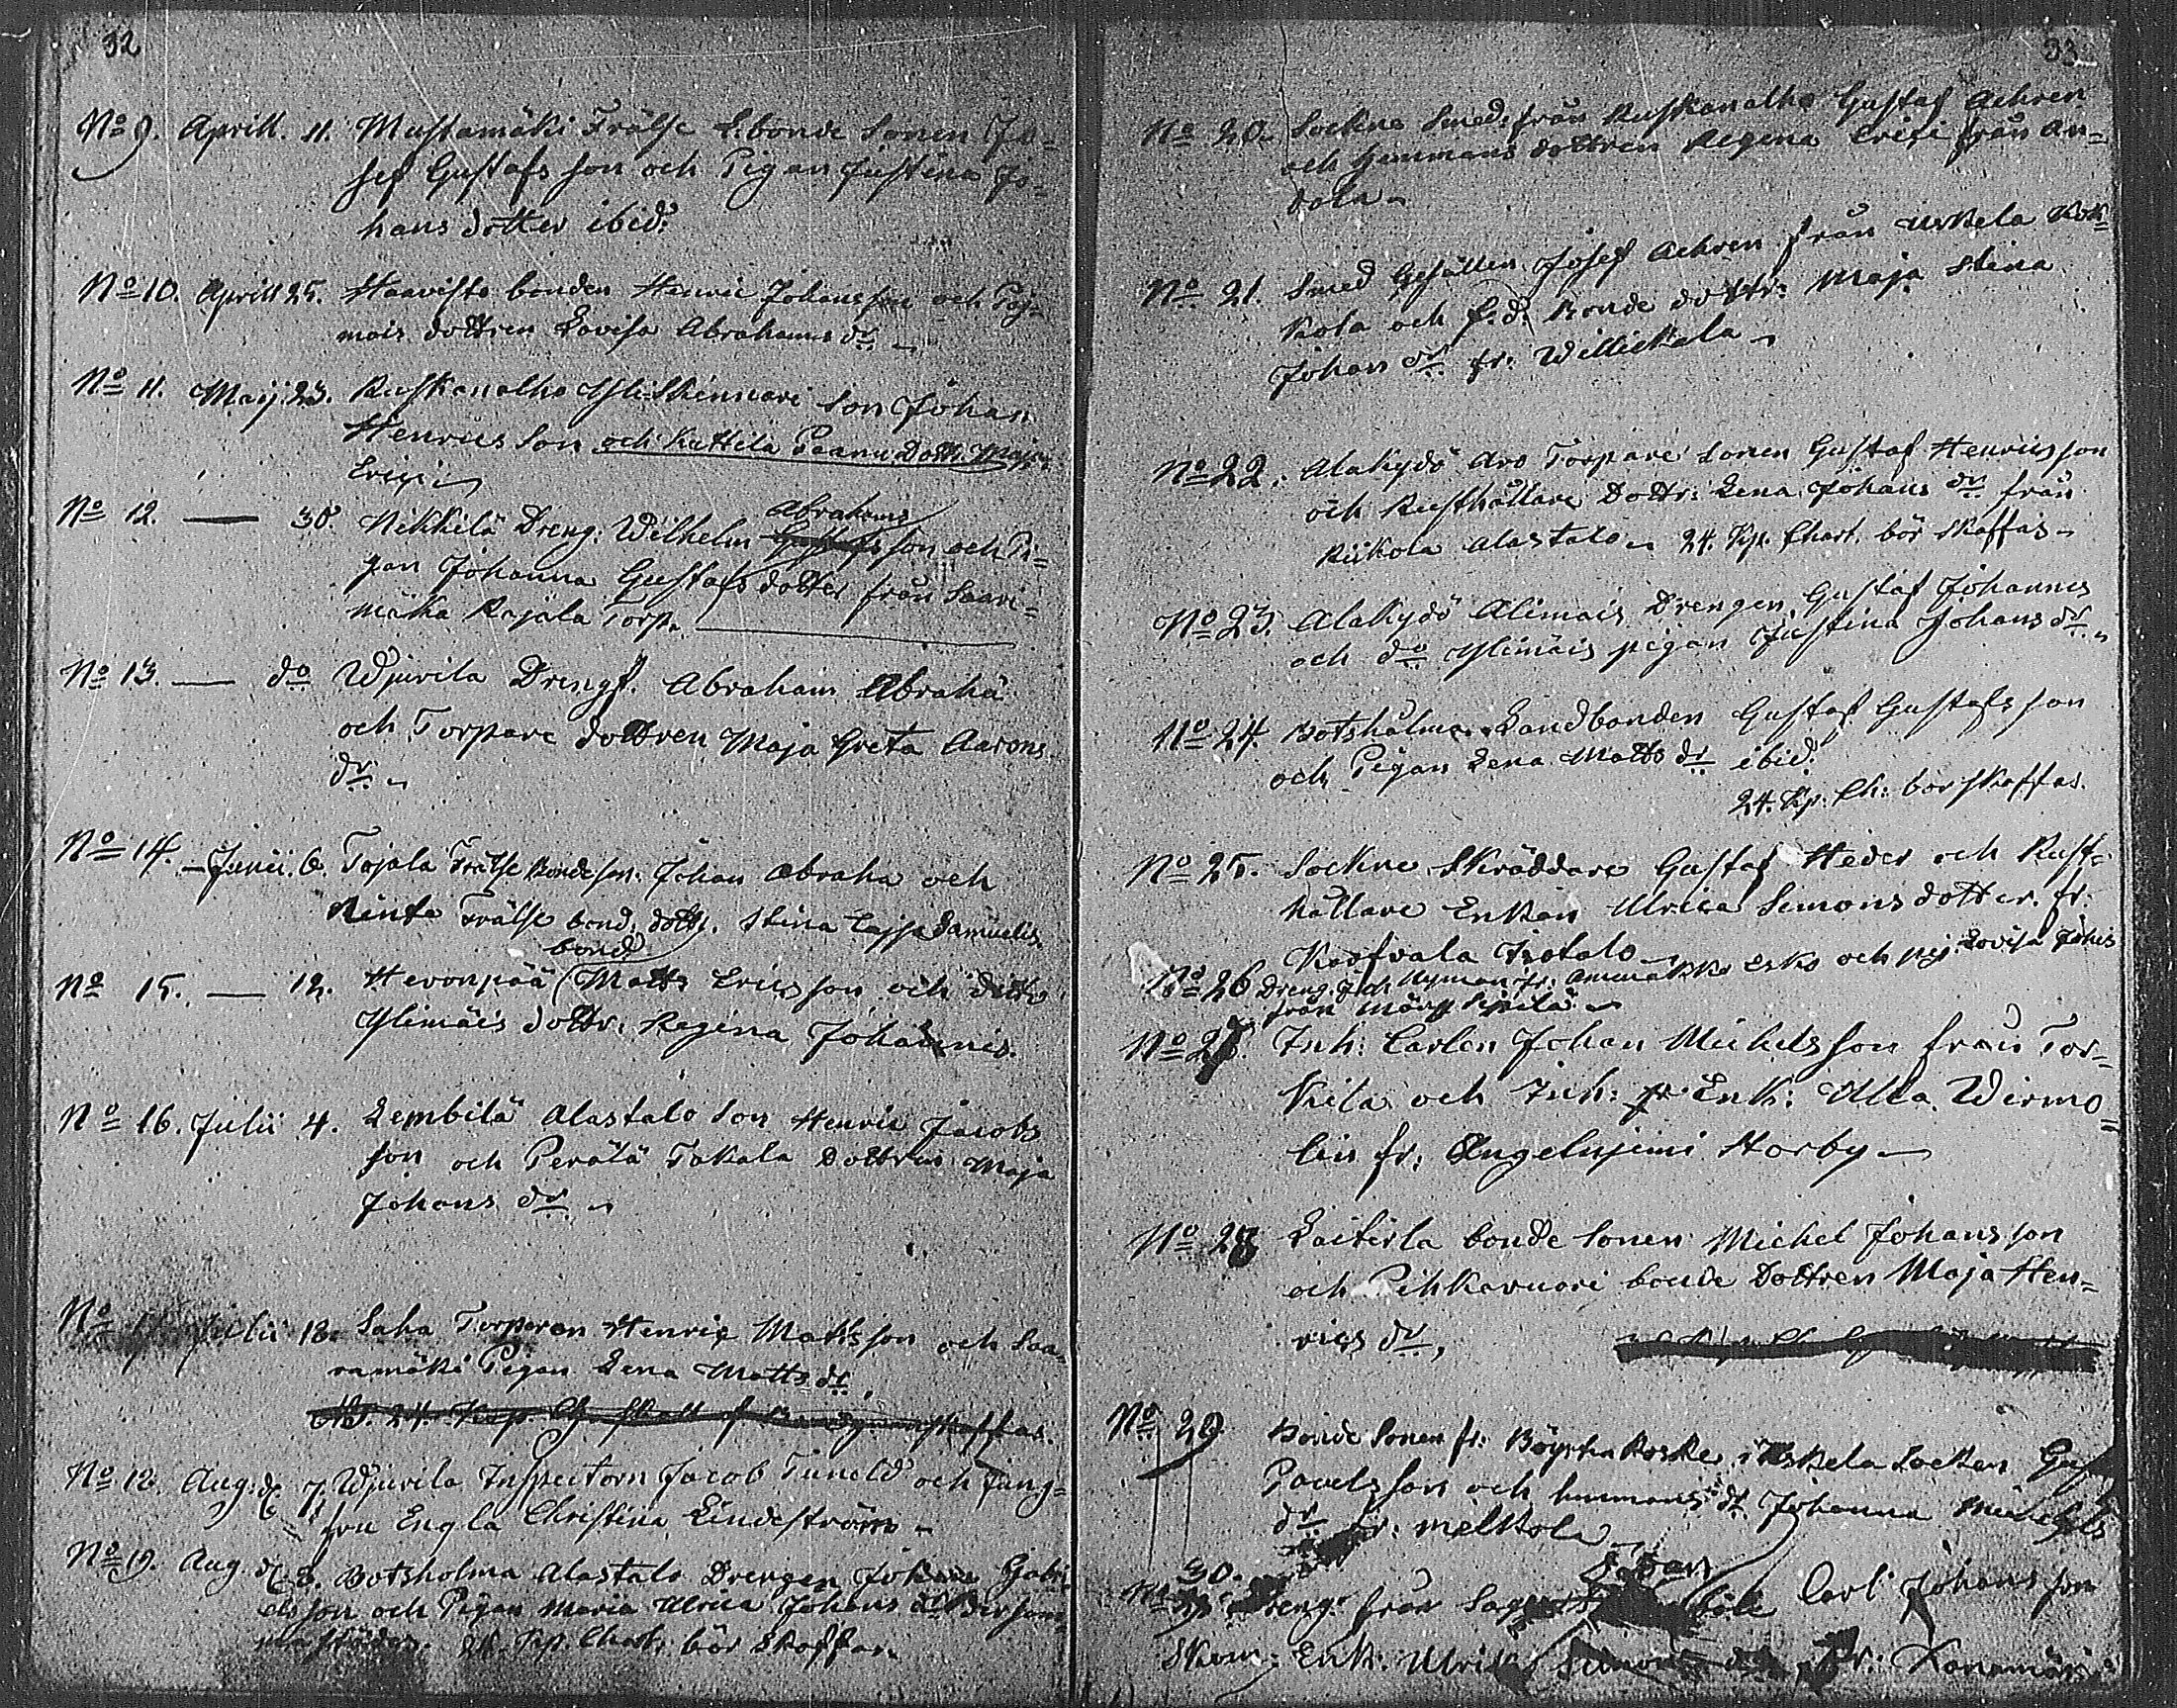 32
No 9. Aprill. 11. Mustamäki Frälse L.bonde Sonen Jo=
sef Gustafs son och Pigan Justina Jo=
hans dotter ibid:
No 10. Aprill 25. Haavisto bonden Henric Johansson och Pij=
mais dottren Lovisa Abrahams dr
No 11. Maij. 23. Ruskanalho Yliskinnari Son Johan
Henrics Son och Kattila Paanu Dottr. Maja
Erici
No 12. — 30. Nikkilä Dreng: Wilhelm Abrahams son och Pi=
gan Johanna Gustafs dotter från Saari=
mäka Rajala Torp.
No 13. — do Wjurila Drengf. Abraham Abrahä
och Torpare dottren Maja Greta Aarons
dr
No 14. — Junii. 6. Tajala Frälse Bondeson. Johan Abraha och
Kinta Frälse bond: dottr. Stina Cajsa Samuelis.
bond:
No 15. — 12. Hevonpää Matts Ericsson och ditto
Ylimäis dottr: Regina Johannis.
No 16. Julii 4. Lembilä Alastalo Son Henric Jacobs
son och Perälä Takala Dottren Maja
Johans dr
No Julii 18. Saha Torparen Henric Matts son och Saa=
ramäki Pigan Lena Matts dr.
24. Kap. skaffas.
No 18. Aug: d. 7. Wjurila Inspectorn Jacob Tuneld och Jung=
fru Engla Christina Lindeström
No 19. Aug. d. 8. Botsholma Alastalo Drengen Johan Gabri
elsson och Pigan Maria Ulrica Johans dr
24. Kap. Chart. bör skaffas.
33
No 20. Sockne Smed: från Ruskanalho Gustaf Achren
och hemmans dottren Regina Erici från An=
dola
No 21. Smed Gesällen Josef Achren från Uskela Kok=
kola och f.d. Bonde dottr: Maja Stina
Johans dr fr: Willickala
No 22. Alakydö Aro Torpare Sonen Gustaf Henricsson
och Rusthållare Dottr: Lena Johans dr från
Kiikola Alastalo 24. Kp. Chart. bör skaffas
No 23. Alakydö Alimais Drengen Gustaf Johannis
och do Ylimäis pigan Justina Johans dr
No 24. Botsholma Landbonden Gustaf Gustafsson
och Pigan Lena Matts dr ibid.
24. Kp. Ch: bör skaffas.
No 25. Sockne Skräddare Gustaf Heder och Rust=
hållare Enkan Ulrica Simons dotter. fr:
Isotalo
No 26 Dreng. Joh Nyman fr: Ammäkko Esko och pij. Lovisa Johis
från Märy Sipilä
No 27. Inh: Carlen Johan Michelsson från Tor=
kila och Inh: Enk: Ulla Wirmo=
lin fr: Angelnjemi Norby
No 28 Laiterla bonde Sonen Michel Johansson
och Pihkavuori bonde Dottren Maja Hen=
rics dr,
No 29. Bonde Sonen fr: Koske i Uskela Socken
Povelsson och hemmans dr Johanna Michels
dr fr: Melkola
30.
No Dreng: från Carl Johansson
Enk: Ulrik Simons dr fr: